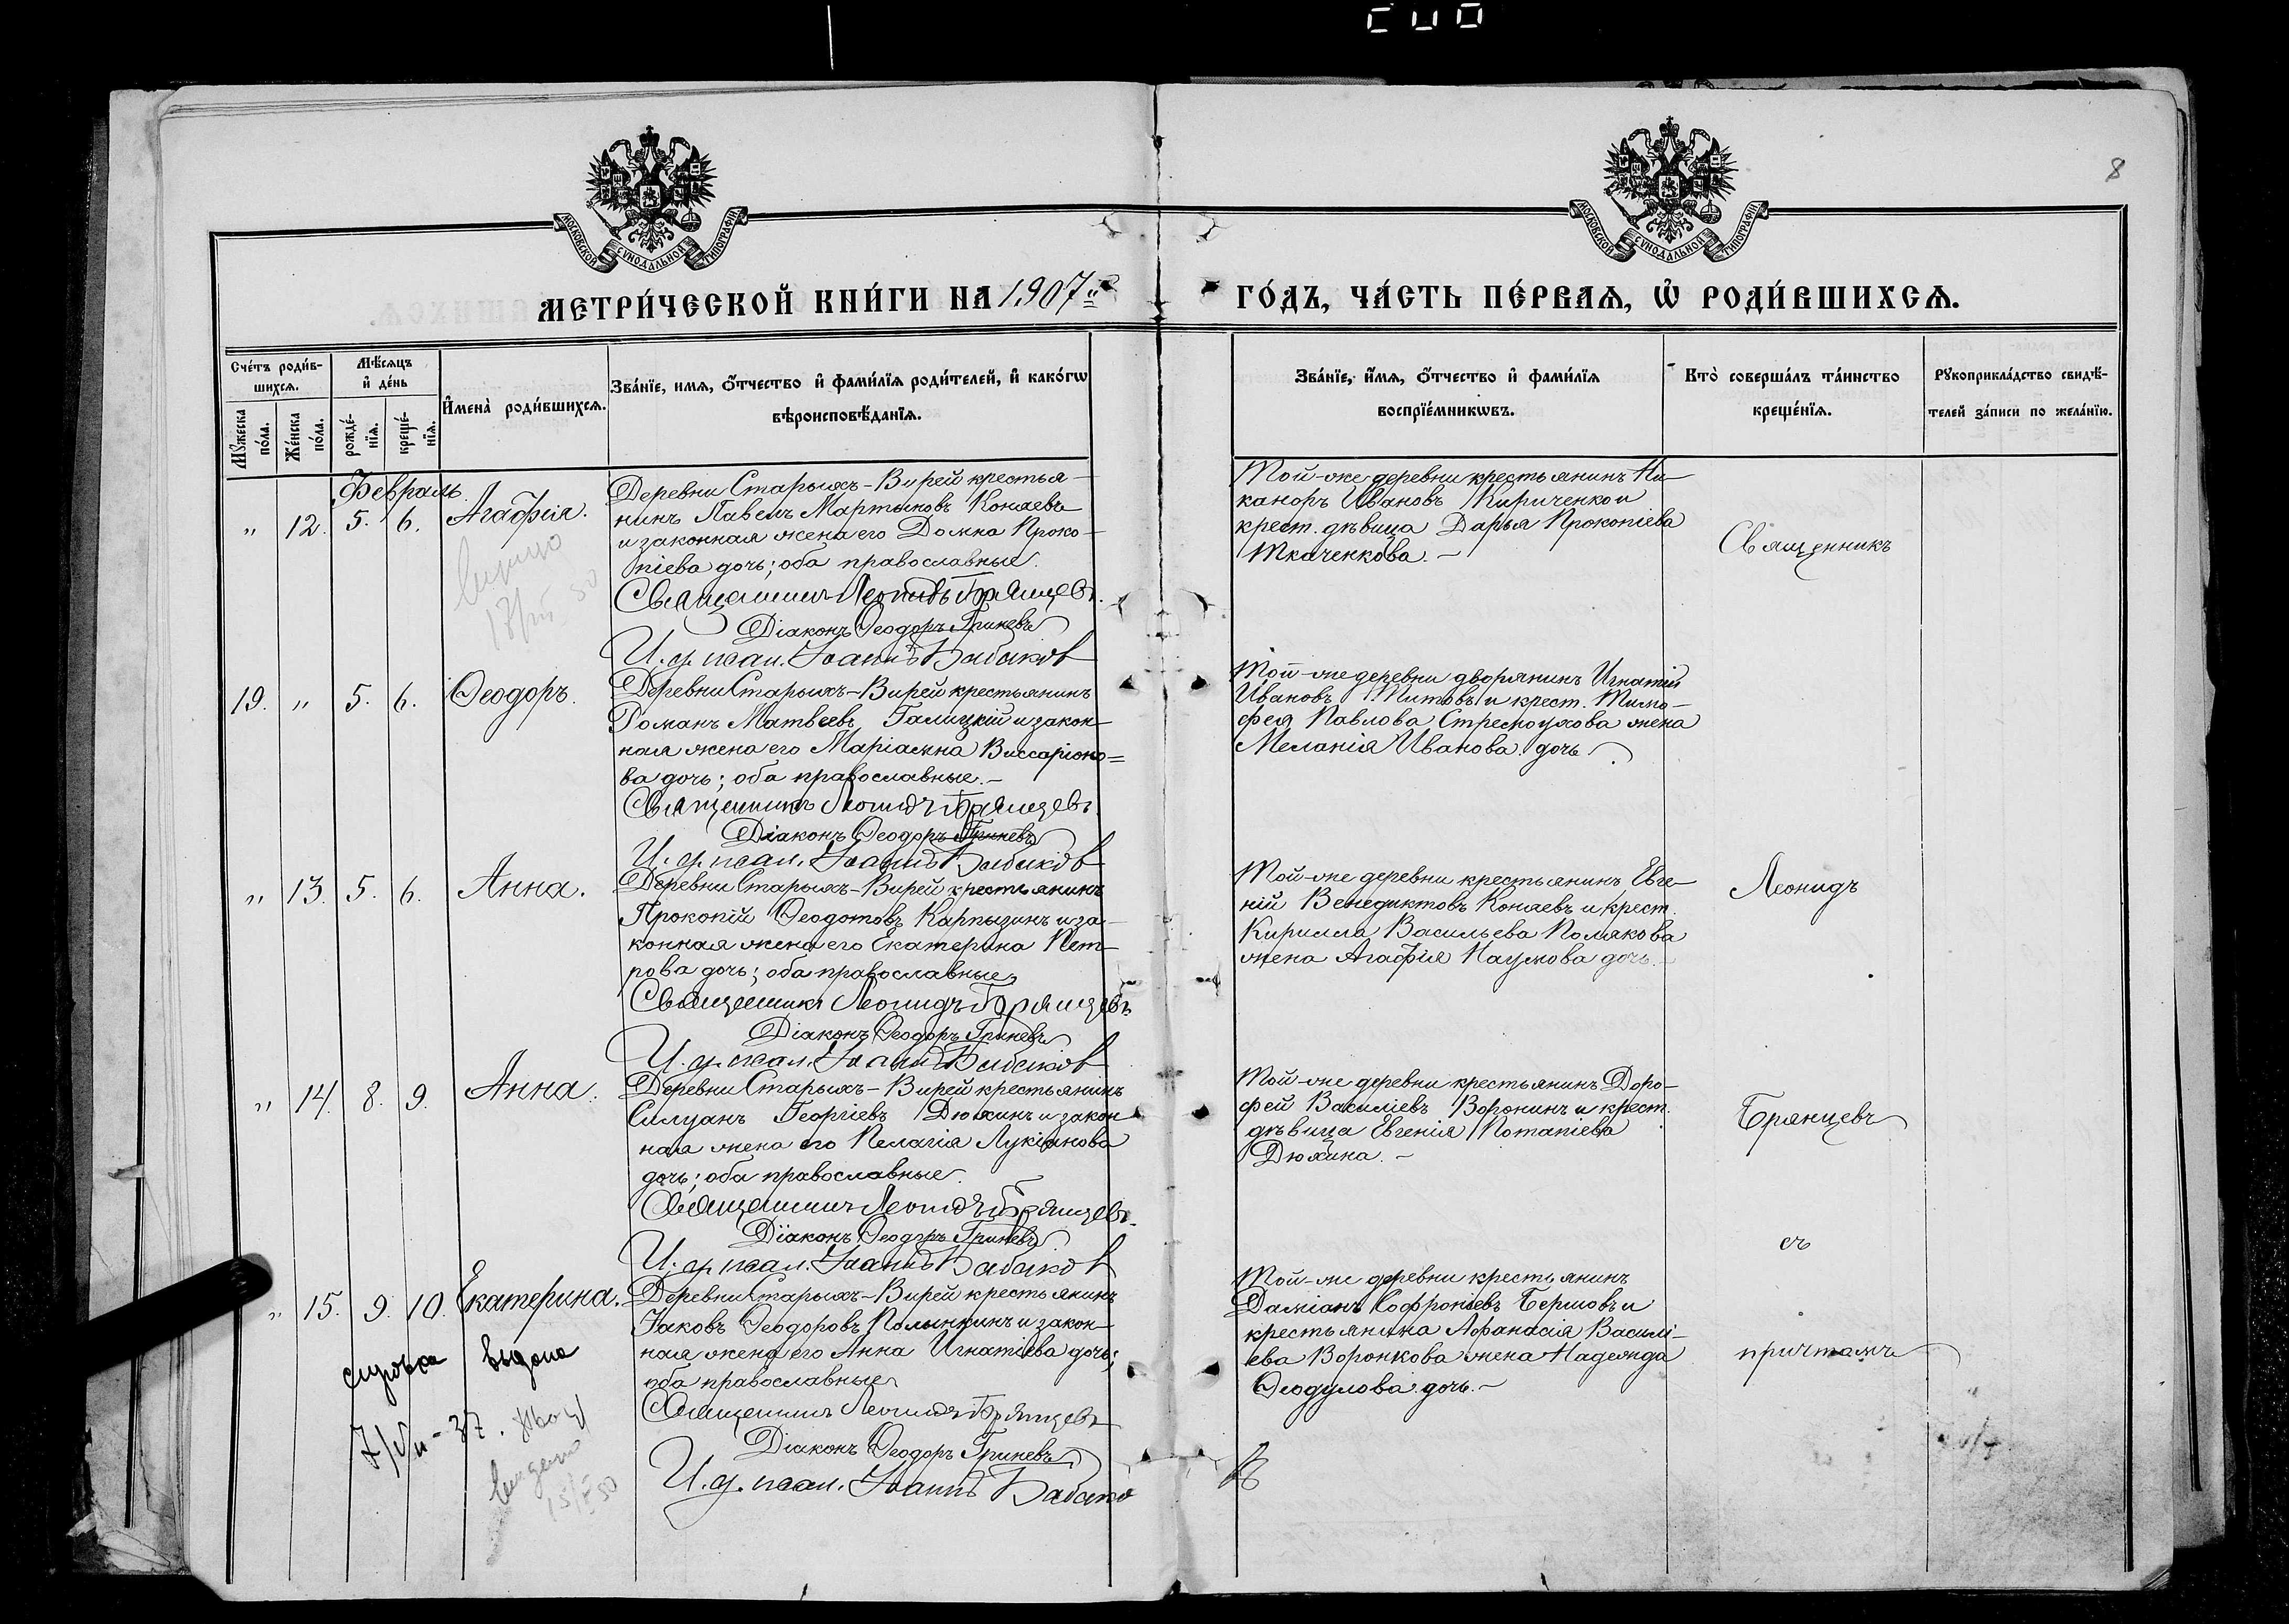 8
МОСКОВСКОЙ СУНОДАЛЬНОЙ ТИПОГРАФІИ
МОСКОВСКОЙ СУНОДАЛЬНОЙ ТИПОГРАФІИ
МЕТРИ́ЧЕСКОЙ КНИ́ГИ НА 1907й
ГО́ДЪ, ЧА́СТЬ ПЕ́РВАѦ, Ѽ РОДИ́ВШИХСѦ.
Сче́тъ роди́в-
шихсѧ.
Мѣ́сѧцъ
и҆ де́нь
Мꙋ́жеска
по́ла.
Же́нска
по́ла.
рожде́-
нїѧ.
креще́-
нїѧ.
И҆мена̀ роди́вшихсѧ.
Зва́нїе, имѧ, ѻ҆́тчество и҆ фами́лїѧ роди́телей, и҆ како́гѡ
вѣроисповѣ́данїѧ.
Зва́нїе, и҆́мѧ, ѻ҆́тчество и҆ фами́лїѧ
воспрїе́мникѡвъ.
Кто̀ соверша́лъ та́инство
креще́нїѧ.
Рꙋкоприкла́дство свидѣ́-
телей за́писи по жела́нїю.
Февраль.
" 12. 5. 6. Агафія.
Деревни Старыхъ-Вирей крестья-
нинъ Павелъ Мартыновъ Конаевъ
и законная жена его Домна Проко-
піева дочь; оба православные.
Священникъ Леонидъ Брянцевъ.
Діаконъ Ѳеодоръ Гриневъ
И. д. псал. Іоаннъ Бабаков
Той-же деревни крестьянинъ Ни-
каноръ Ивановъ Кириченко и
крест. дѣвица Дарья Прокопіева
Ткаченкова.-
Священникъ
19. " 5. 6. Ѳеодоръ.
Деревни Старыхъ-Вирей крестьянинъ
Романъ Матвеевъ Галицкій и закон-
ная жена его Маріамна Виссаріоно=
ва дочь; оба православные.-
Священникъ Леонидъ Брянцевъ.
Діаконъ Ѳеодоръ Гриневъ
И. д. псал. Іоаннъ Бабаков
Той-же деревни дворянинъ Игнатій
Ивановъ Титовъ и крест. Тимо-
фея Павлова Стремоухова жена
Меланія Иванова дочь.
" 13. 5. 6. Анна.
Деревни Старыхъ-Вирей крестьянинъ
Прокопій Ѳеодотовъ Карпызинъ и за-
конная жена его Екатерина Пет-
рова дочь; оба православные
Священникъ Леонидъ Брянцевъ
Діаконъ Ѳеодоръ Гриневъ
И. д. псал. Іоаннъ Бабаков
Той-же деревни крестьянинъ Евге-
ній Венедиктовъ Конаевъ и крест.
Кирилла Васильева Полякова
жена Агафія Наумова дочь.-
Леонидъ
" 14. 8. 9. Анна.
Деревни Старыхъ-Вирей крестьянинъ
Силуанъ Георгіевъ Дюжинъ и закон
ная жена его Пелагія Лукіянова
дочь; оба православные.
Священникъ Леонидъ Брянцевъ.
Діаконъ Ѳеодоръ Гриневъ
И. д. псал. Іоаннъ Бабаков
Той-же деревни крестьянинъ Доро-
фей Василіевъ Воронинъ и крест.
дѣвица Евгенія Потапіева
Дюжина.-
Брянцевъ
съ
" 15. 9. 10. Екатерина.
Деревни Старыхъ-Вирей крестьянинъ
Іаковъ Ѳеодоровъ Полынкинъ и закон-
ная жена его Анна Игнатіева дочь;
оба православные
Священникъ Леонидъ Брянцевъ
Діаконъ Ѳеодоръ Гриневъ
И. д. псал. Іоаннъ Бабако
Той-же деревни крестьянинъ
Даміанъ Софроніевъ Бершовъ и
крестьянина Афанасія Василі-
ева Воронкова жена Надежда
Ѳеодулова дочь.-
причтомъ
выдана
7/VII-37.